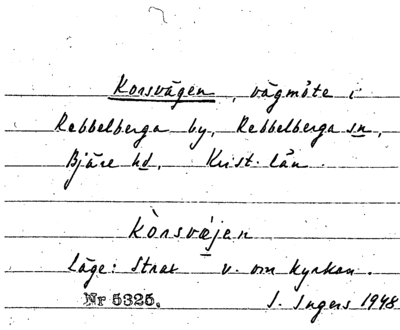 Korsvägen, vägmöte i
Rebbelberga by, Rebbelberga sn,
Bjäre hd, Krist. län.
kòrsvæjen
Läge: Strax v. om kyrkan.
Nr 5325. I. Ingers 1948